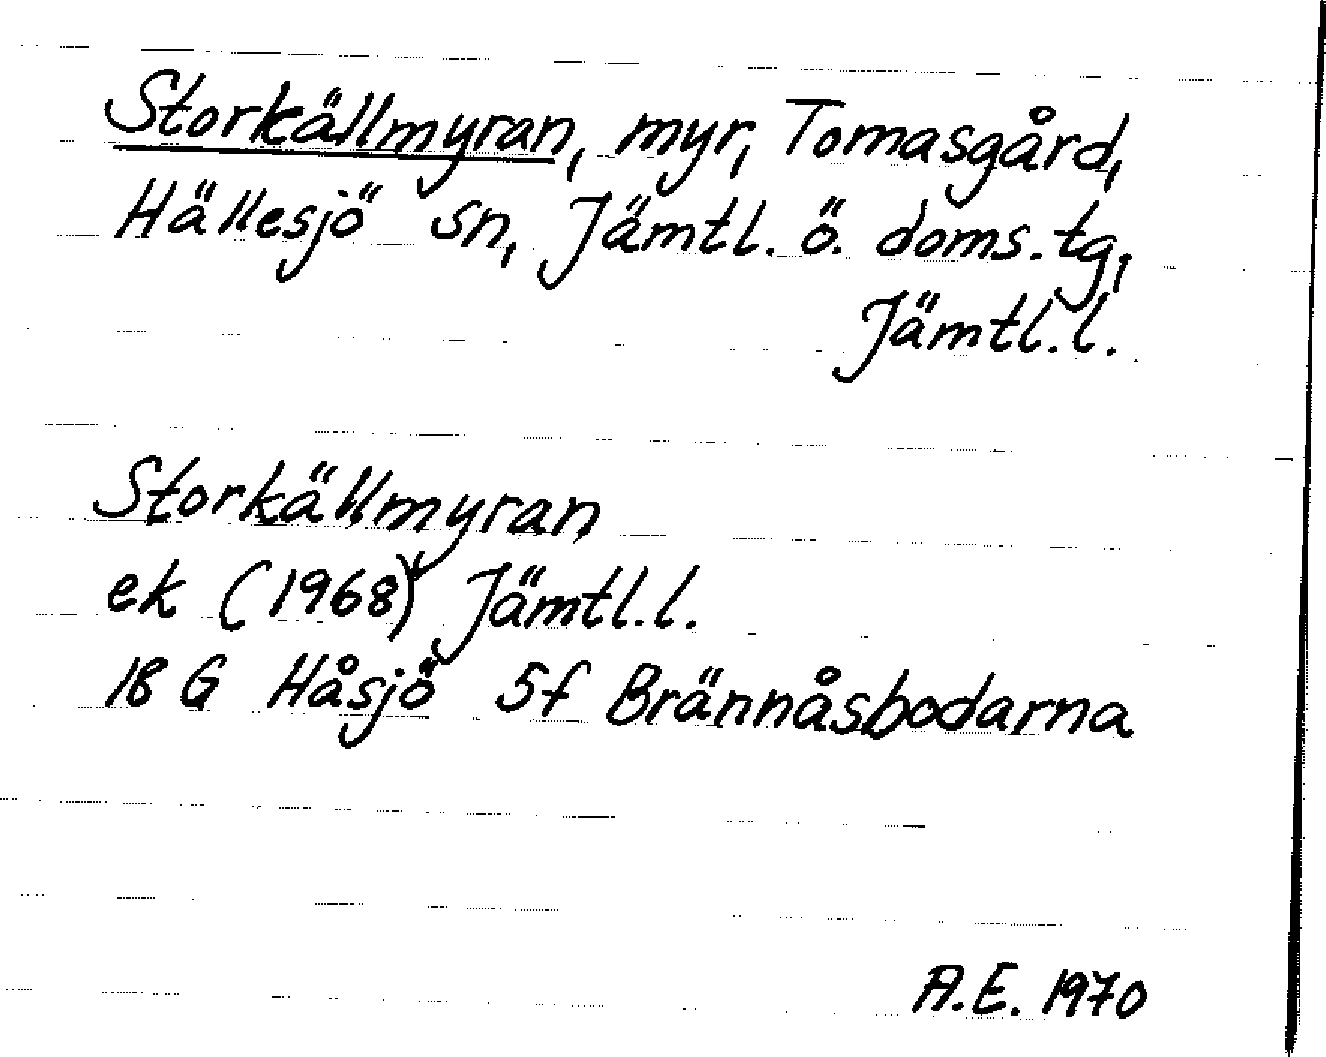 Storkällmyran, myr, Tomasgård,
Hällesjö sn, Jämtl. ö. doms.tg,
Jämtl.l.
Storkällmyran
ek (1968) Jämtl.l.
18 G Håsjö 5f Brännåsbodarna
A.E. 1970